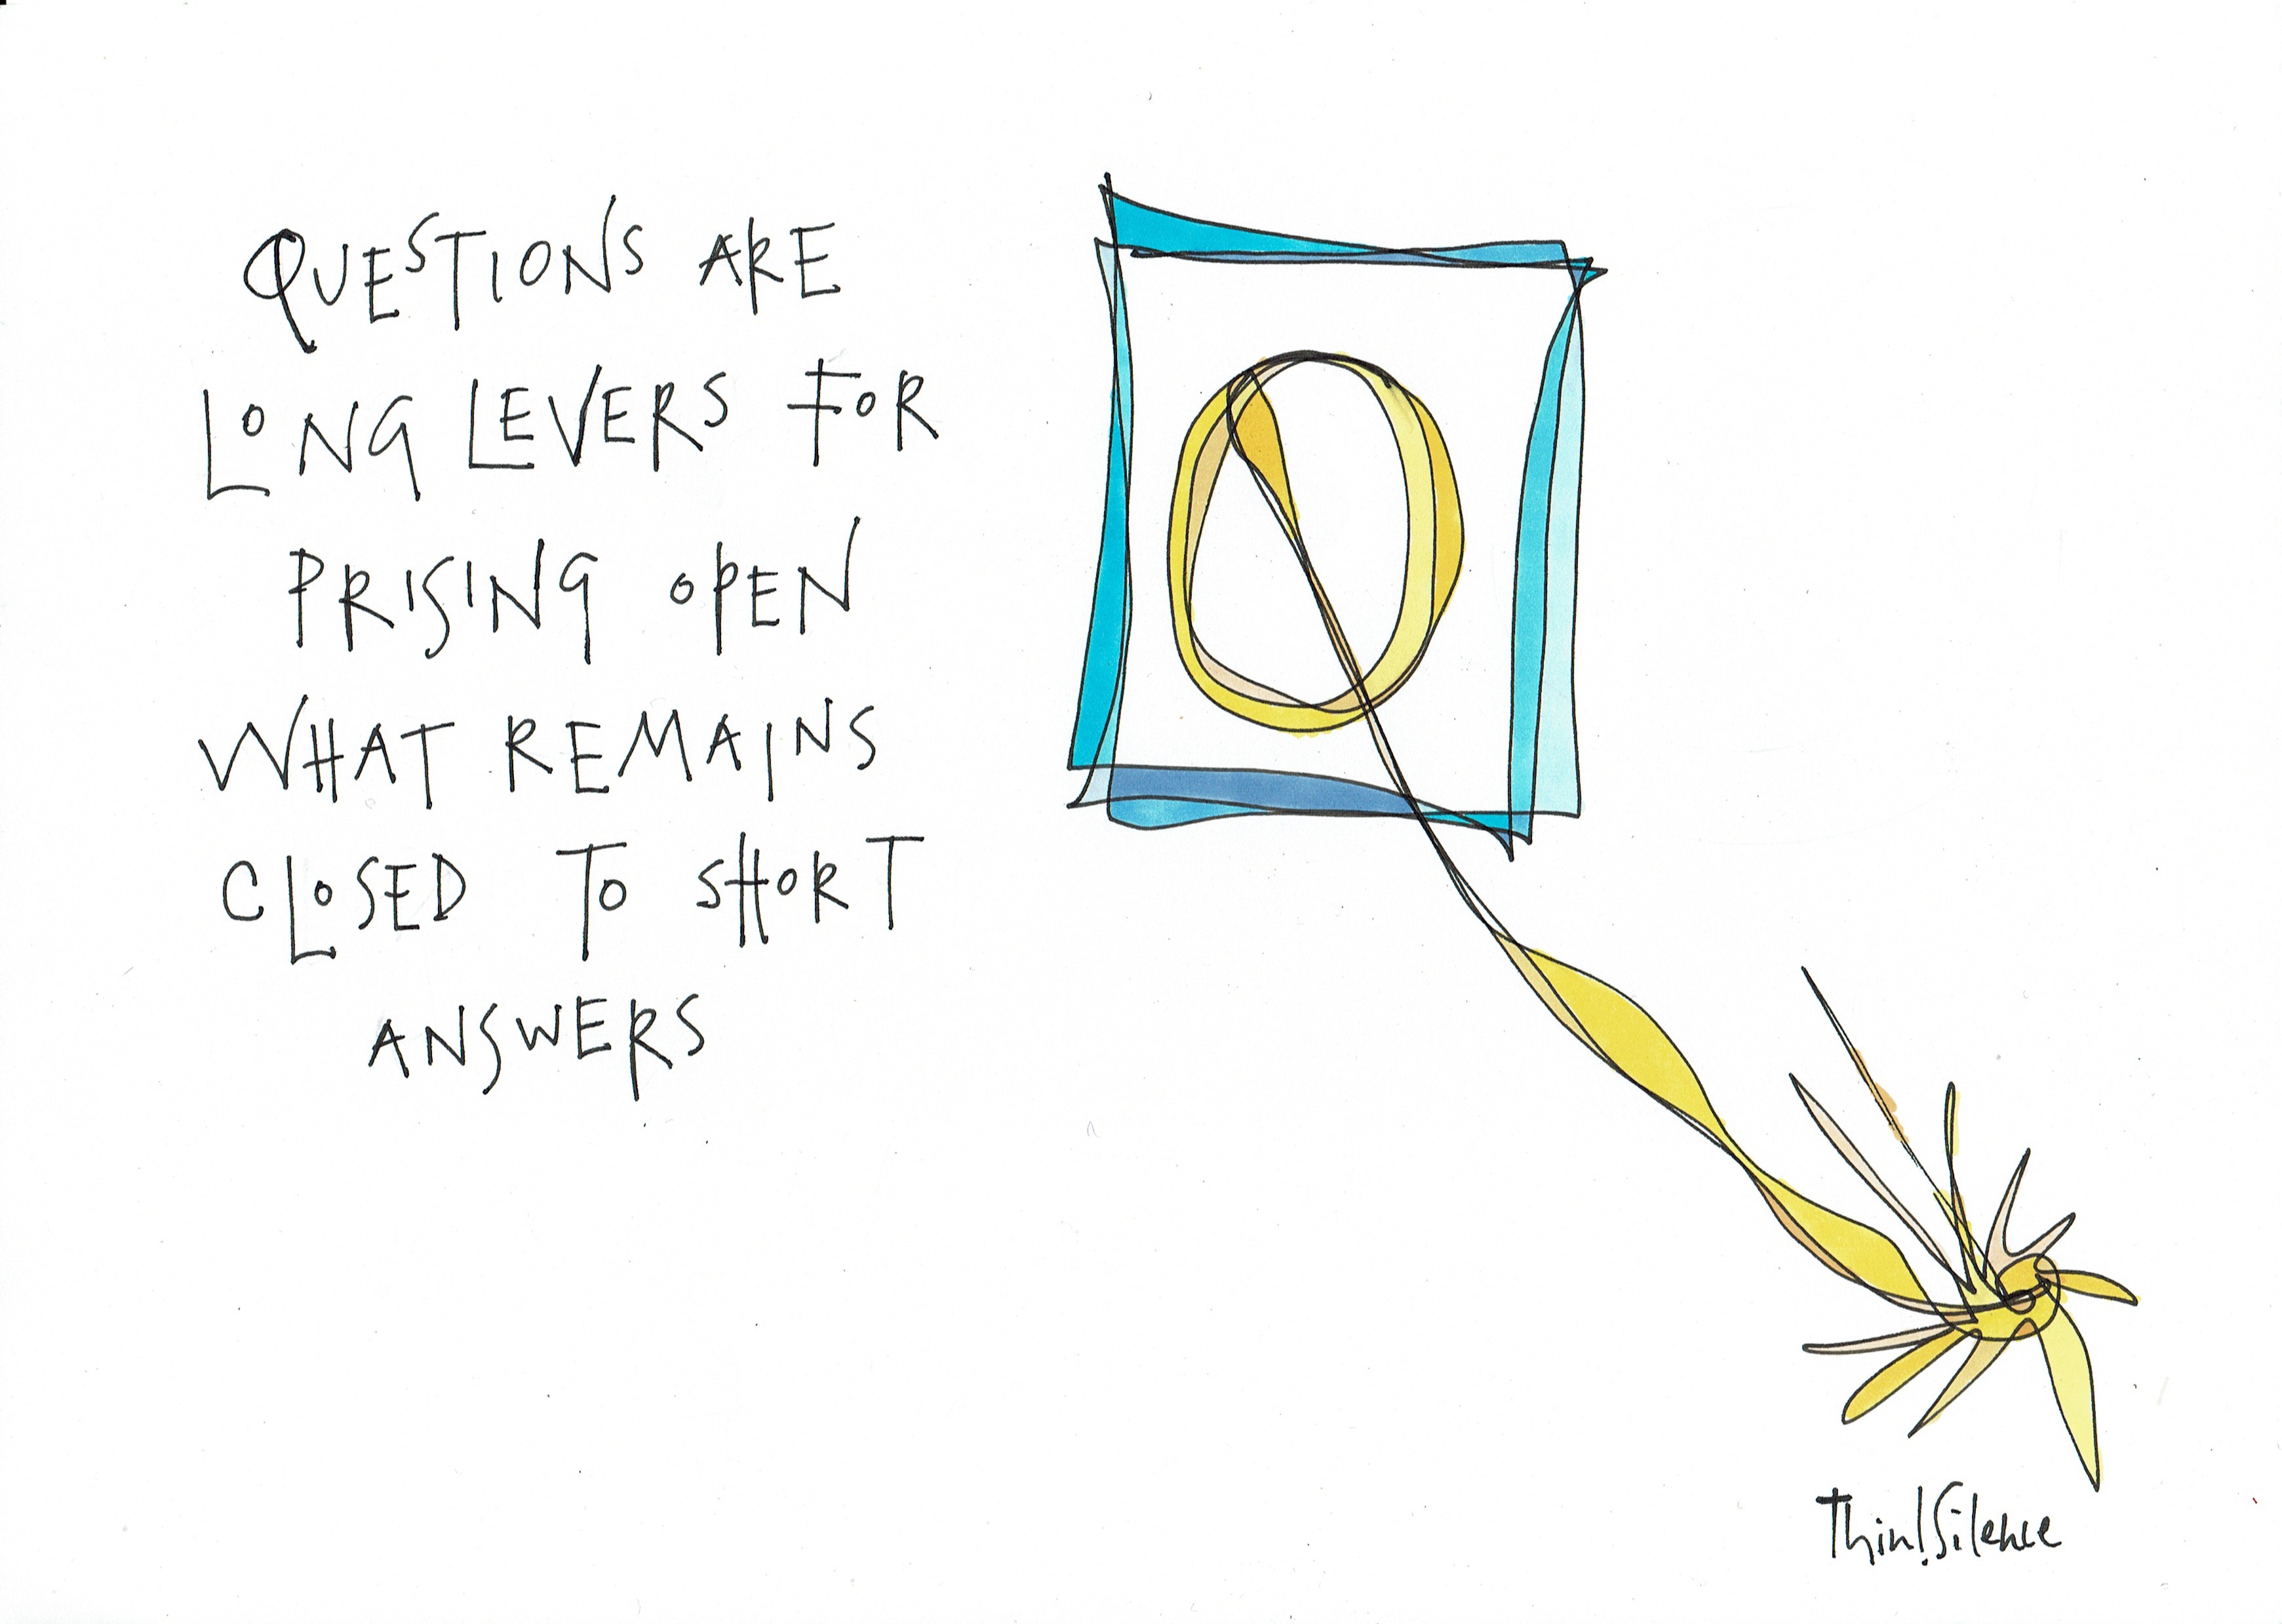 QUESTIONS ARE
LONG LEVERS FOR
PRISING OPEN
WHAT REMAINS
CLOSED TO SHORT
ANSWERS
Thin!Silence